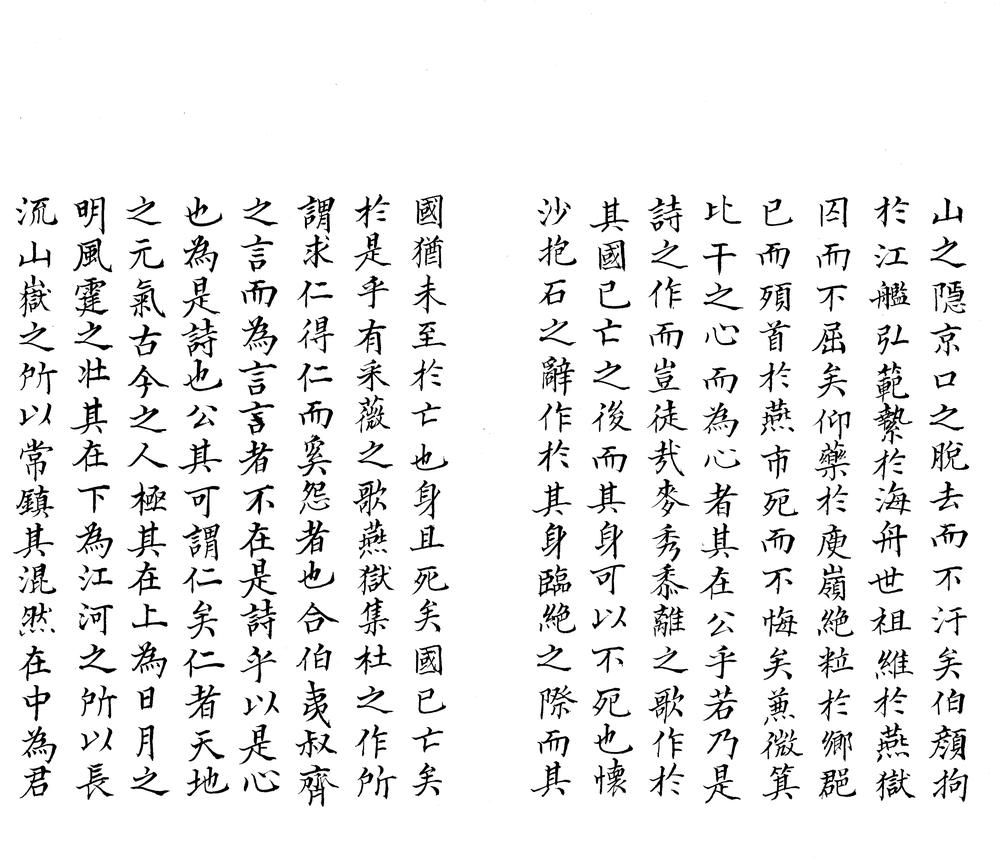 山之隱京口之脫去而不汙矣伯顏拘
於江艦弘範縶於海舟世祖維於燕獄
囚而不屈矣仰藥於庾嶺絶粒於鄉郡
已而殞首於燕市死而不悔矣兼微箕
比干之心而為心者其在公乎若乃是
詩之作而豈徒㦲麥秀黍離之歌作於
其國已亡之後而其身可以不死也懷
沙抱石之辭作於其身臨絶之際而其
國猶未至於亡也身且死矣國已亡矣
於是乎有采薇之歌燕獄集杜之作所
謂求仁得仁而奚怨者也合伯夷叔齊
之言而為言言者不在是詩乎以是心
也為是詩也公其可謂仁矣仁者天地
之元氣古今之人極其在上為日月之
明風霆之壯其在下為江河之所以長
流山嶽之所以常鎮其混然在中為君